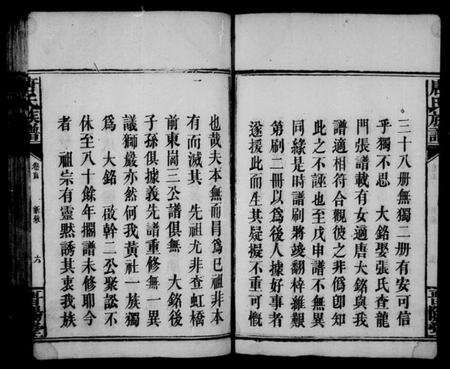 三十八册無獨二册有安可信
乎獨不思　大銘娶張氏查龍
門張譜載有女適唐大銘與我
譜適相符合觀彼之非僞卽知
此之不誣也至戊申譜不無異
同緣是時譜刷將竣翻梓雖艱
第刷二册以爲後人據好事者
遂援此而生其疑擬不重可慨
唐氏族譜
也哉夫本無而冒爲已祖非本
有而滅其　先祖尤非查虹橋
前東崗三公譜俱無　大銘後
子孫俱據義先譜重修無一異
議獅巖亦然何我黃社一族獨
爲　大銘　啟幹二公聚訟不
休至八十餘年擱譜未修耶今
者　祖宗有靈黙誘其衷我族
唐氏族譜
卷五
六